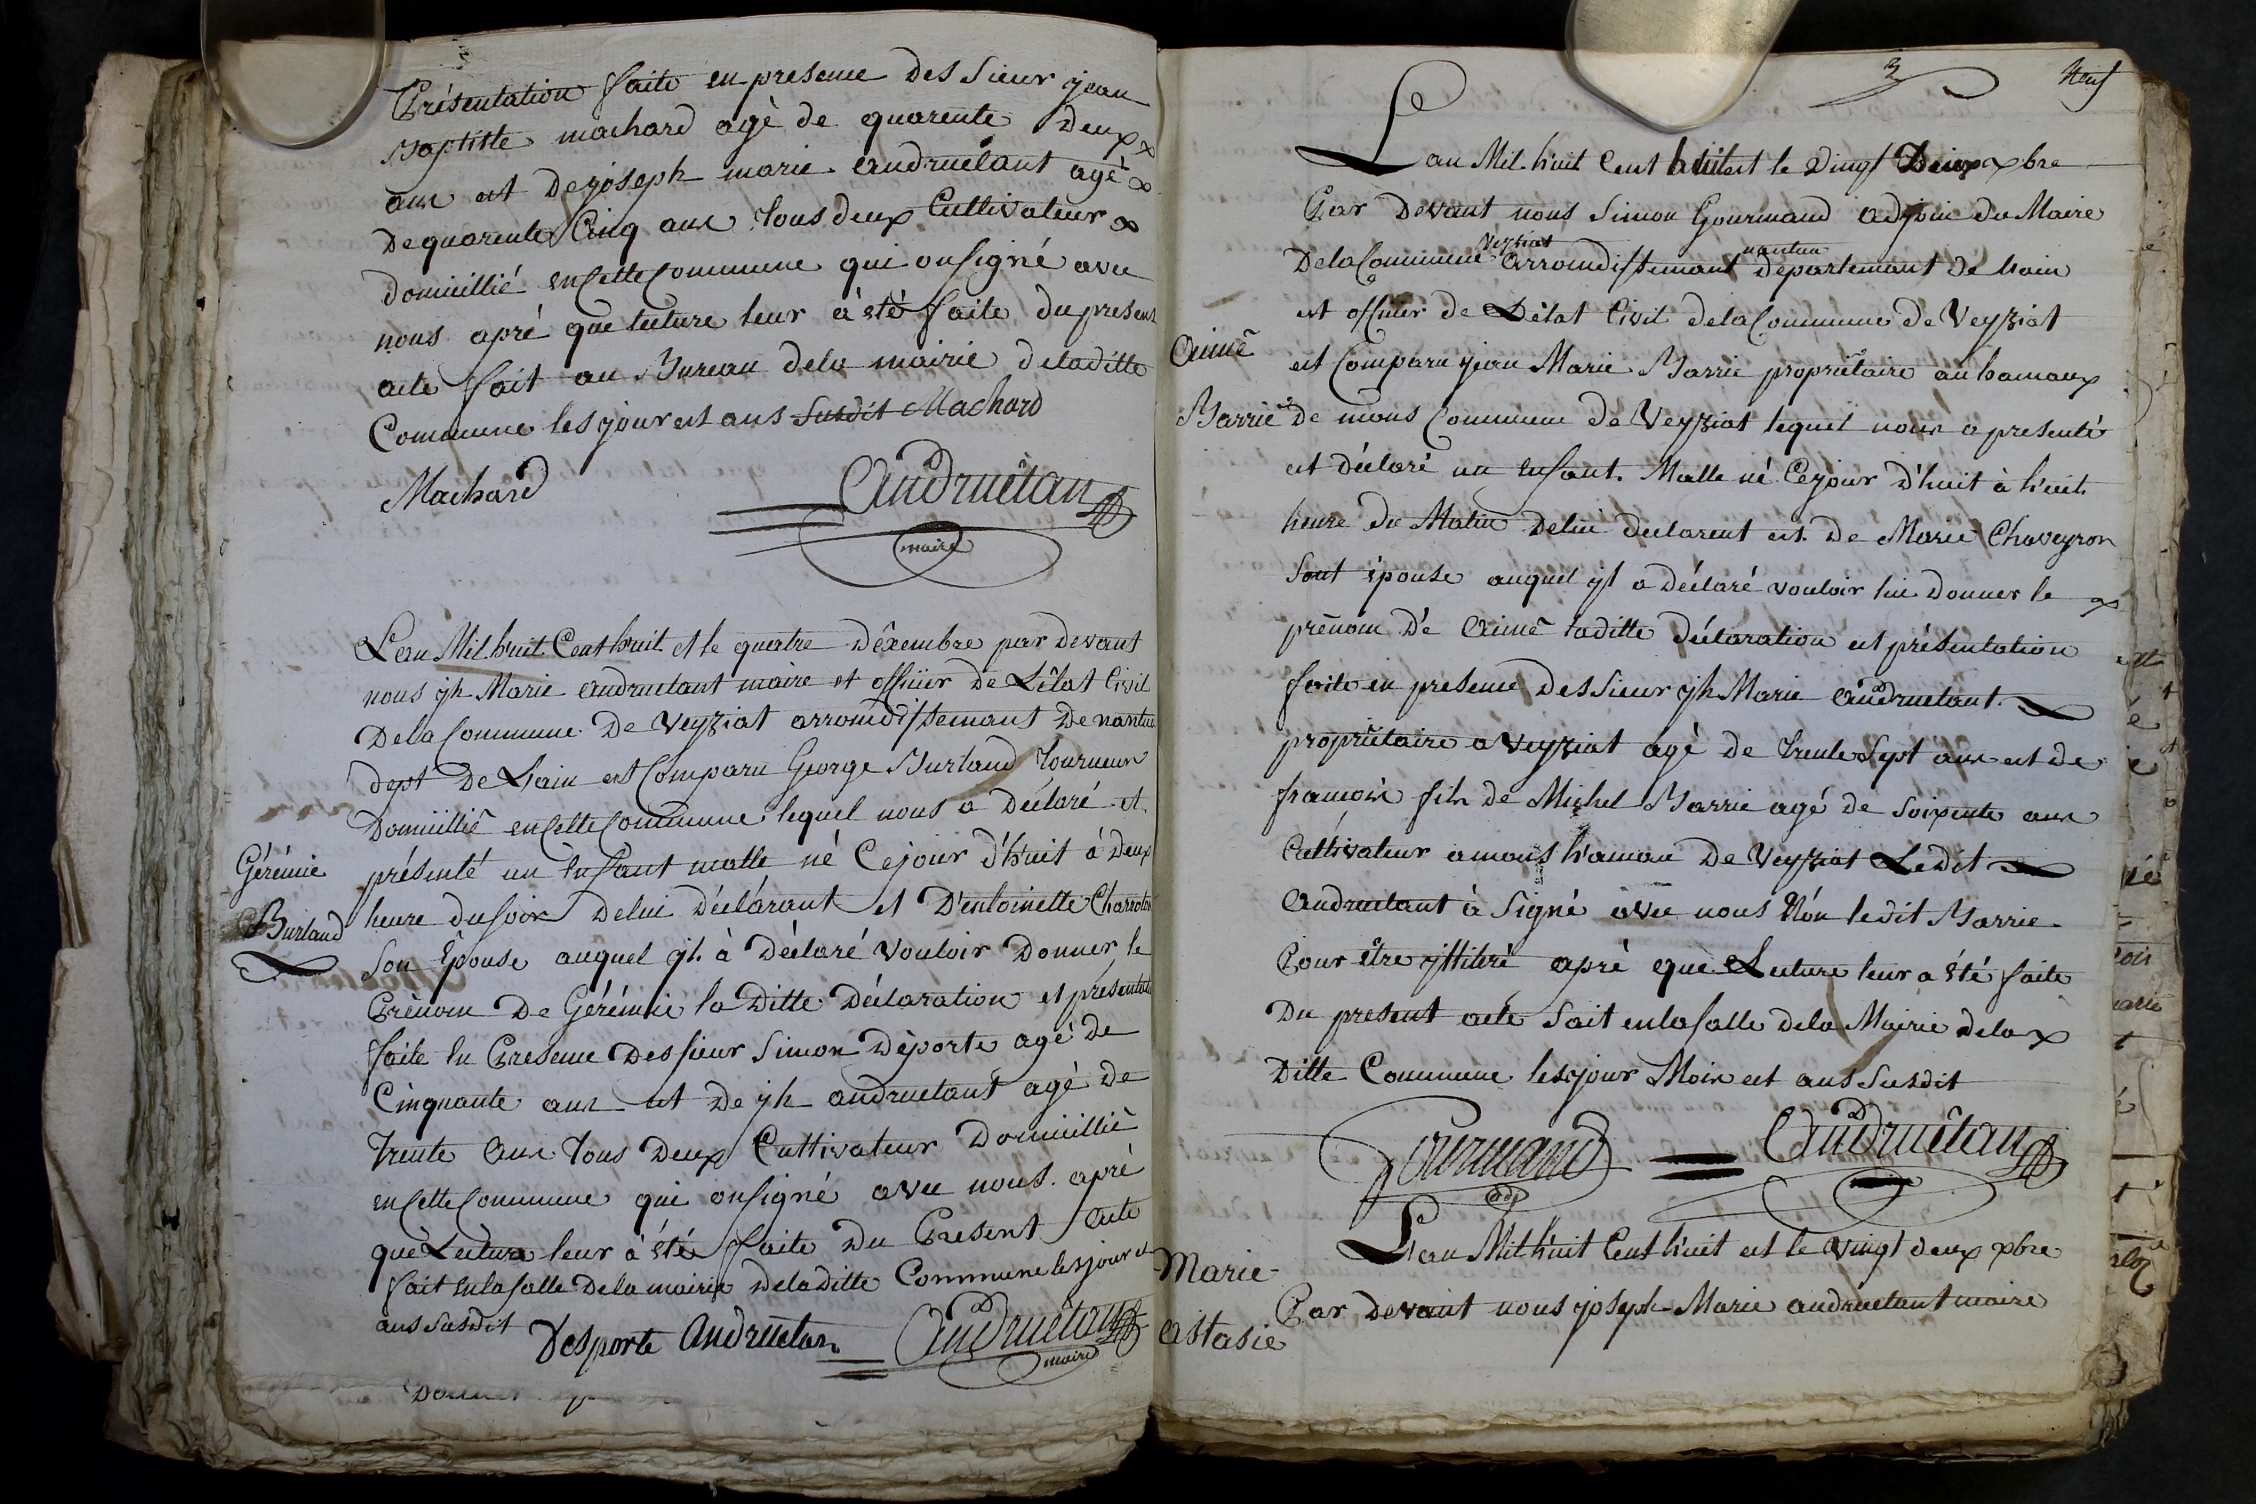 Présentation faite en presence des Sieur jean
Baptiste machard agè de quarente Deux
ans et De joseph marie andruétant agè
De quarente Cinq ans tous deux Cultivateur
domicillié en Cette Commune qui on Signé avec
nous apré que lecture leur à été faite du present
acte fait au Bureau dela mairie deladitte
Commune les jour et ans Susdit Machard
Machard Andruêtan
maire
Lan Mil huit Cent huit et le quatre déxembre par devant
nous jh Marie andruetant maire et officier De Létat Civil
Dela Commune De Veyziat arromdissemant De nantua
dept De Lain est Comparu George Burland tourneur
Domicillié en Cette Commune lequel nous a Déclaré et
Gérémie
présenté un enfant malle né Cejour d'huit à Deux
Burland
heure du soir Delui Déclárant et D'entoinette
Son Épouse auquel jl à Déclaré Vouloir Donner le
Prénom De Gérémie la Ditte Déclaration et présentation
faite en Presence Des sieur Simon Déporte agé De
Cinquante ans et De jh andruetant agé De
trente ans tous Deux Cultivateur Domicillié
en Cette Commune qui on signé avec nous apré
que Lecture leur à été faite Du Present Acte
fait enlasalle Dela mairie Deladitte Commune les jour et
ans Susdit Desporte Andruétan Andruêtan
maire
3 Neuf
Lan Mil huit Cent huit et le vingt Deux xbre
Par Devant nous Simon Gourmand adjoin du Maire
Veyziat nantua
Dela Commune arromdissemant département de hain
et officier de Létat Civil dela Commune de Veyziat
Aimé
est Comparu jean Marie Barrié propriétaire au hamaux
Barrié
de mons Commune de Veyziat lequel nous a presenté
et déclaré un enfant Malle né Cejour d'huit à huit
heure du Matin Delui declarent et De Marie Chaveyron
Sont épouse auquel jl a Déclaré vouloir lui Donner le
prénom De Aimé laditte déclaration et présentation
faite en presence Des Sieur jh Marie andruetant
propriétaire a Veyziat agè de trente Sept ans et de
francois fils de Michel Barrié agé de soixente ans
Cultivateur a mons hamau De Veyziat Ledit
andruetant à Signé avec nous Nón ledit Barrie
Pour être jllitéré apré que Lecture leur a été faite
Du present acte fait enlasalle dela Mairie dela
Ditte Commune les jour Mois et ans Susdit
Gourmand Andruêtan
adj
Lan Mil huit Cent huit et le vingt deux xbre
Marie
Par devant nous joseph Marie andruetant maire
astasie